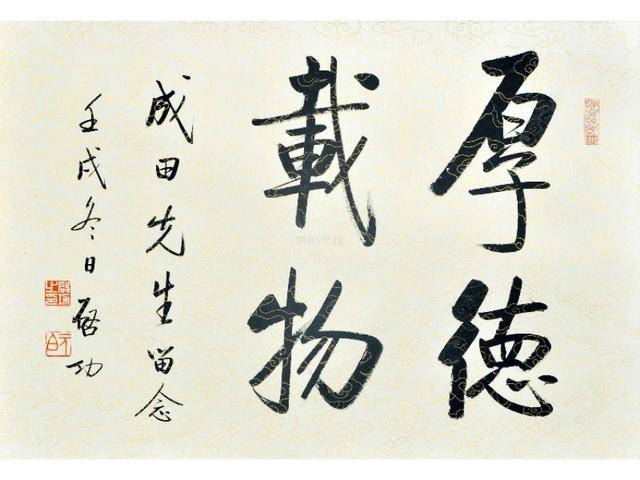 厚德
載物
成田先生留念
壬戌冬日启功